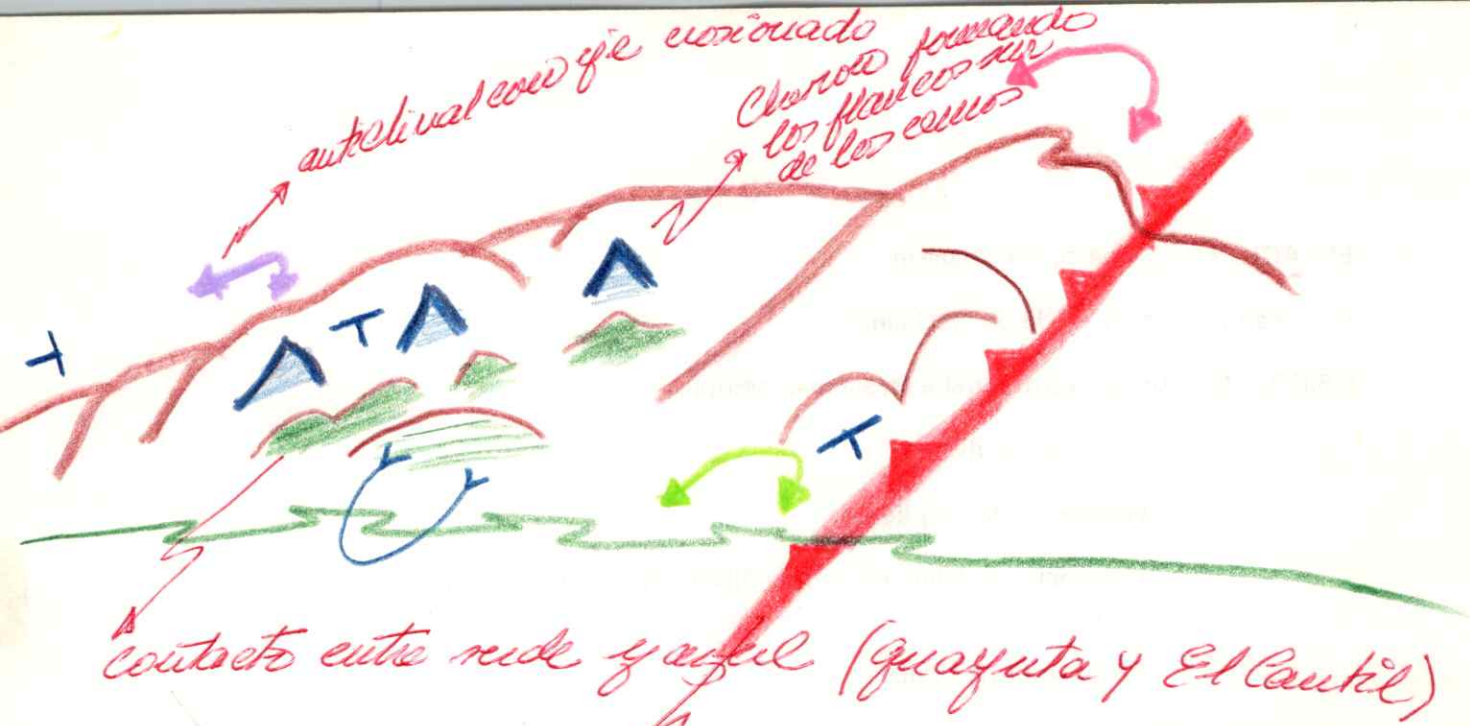 anticlinal con eje erosionado
Chevron formando
los flancos sur
de los cerros
contacto entre verde y azul (guayuta y El Cantil)